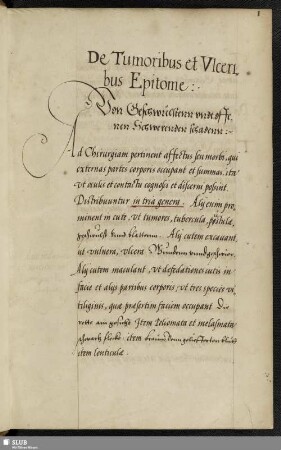 1
De Tumoribus et Vlceri,
bus Epitome :
Von Geschwulstenn vnd offe,
nen Schwerenden schadenn :
Ad Chirurgiam pertinent affectus seu morbi, qui
externas partes corporis occupant et summas, ita
ut oculis et contactu cognosci et discerni possint.
Distribuuntur in tria genera. Alij enim pro,
minent in cute, ut tumores, tubercula, pustula,
geschwulst vnnd blattern. Alij cutem excauant,
ut vulnera, vlcera Wunden vnnd
Alij cutem maculant, ut defedationes cutis in
facie et alijs partibus corporis, ut tres species vi,
tiliginis, quæ præsertim faciem occupant Die
rotte am gesicht Item Poliomata et melasmata
schwartz flecke : item braun
item lenticulæ.
SLUB